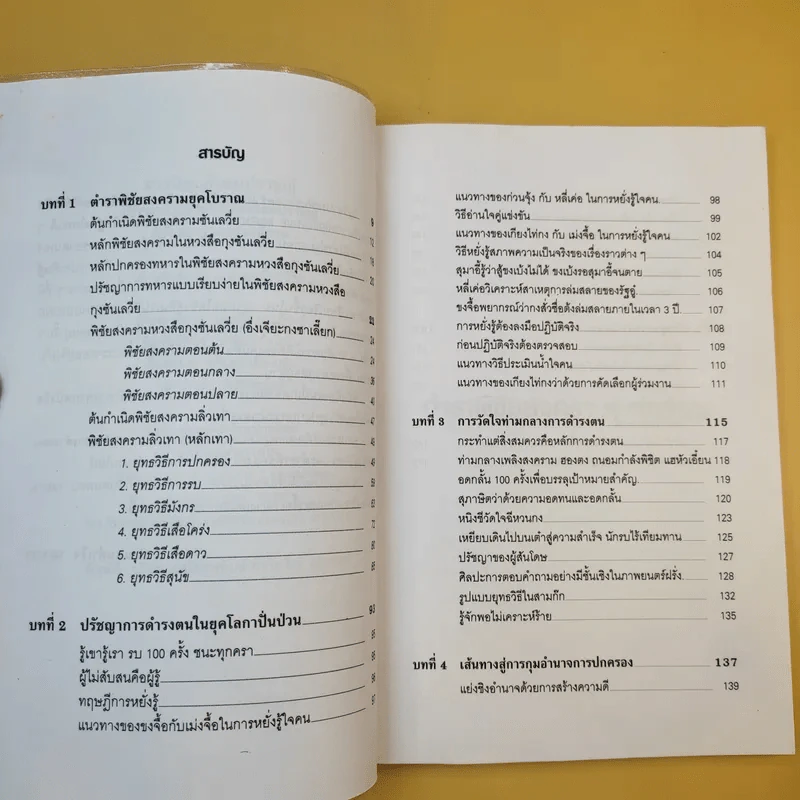 สารบัญ
บทที่ 1 ตำราพิชัยสงครามยุคโบราณ
ต้นกำเนิดพิชัยสงครามซันเลวี่ย 9
หลักพิชัยสงครามในหวงสือกุงซันเลวี่ย 12
หลักปกครองทหารในพิชัยสงครามหวงสือกุงซันเลวี่ย
ปรัชญาการทหารแบบเรียบง่ายในพิชัยสงครามหวงสือ
กุงซันเลวี่ย
พิชัยสงครามหวงสือกุงซันเลวี่ย (อึ่งเจียะกงซาเลี๊ยก) 24
พิชัยสงครามตอนต้น 24
พิชัยสงครามตอนกลาง
พิชัยสงครามตอนปลาย
ต้นกำเนิดพิชัยสงครามลิ่วเทา 47
พิชัยสงครามลิ่วเทา (หลักเทา)
1. ยุทธวิธีการปกครอง
2. ยุทธวิธีการรบ
3. ยุทธวิธีมังกร
4. ยุทธวิธีเสือโคร่ง 72
5. ยุทธวิธีเสือดาว
6. ยุทธวิธีสุนัข
บทที่ 2 ปรัชญาการดำรงตนในยุคโลกาปั่นป่วน 93
รู้เขารู้เรา รบ 100 ครั้ง ชนะทุกครา
ผู้ไม่สับสนคือผู้รู้
ทฤษฎีการหยั่งรู้
แนวทางของขงจื้อกับเม่งจื้อในการหยั่งรู้ใจคน 97
แนวทางของก่วนจุ้ง กับ หลี่เค่อ ในการหยั่งรู้ใจคน 98
วิธีอ่านใจคู่แข่งขัน 99
แนวทางของเกียงไท่กง กับ เม่งจื้อ ในการหยั่งรู้ใจคน 102
วิธีหยั่งรู้สภาพความเป็นจริงของเรื่องราวต่าง ๆ 104
สุมาอี้รู้ว่าสู้ขงเบ้งไม่ได้ ขงเบ้งรอสุมาอี้จนตาย 105
หลี่เค่อวิเคราะห์สาเหตุการล่มสลายของรัฐอู๋ 106
ขงจื้อพยากรณ์ว่ากงสั่วซื่อต้งล่มสลายภายในเวลา 3 ปี 107
การหยั่งรู้ต้องลงมือปฏิบัติจริง 108
ก่อนปฏิบัติจริงต้องตรวจสอบ 109
แนวทางวิธีประเมินน้ำใจคน 110
แนวทางของเกียงไท่กงว่าด้วยการคัดเลือกผู้ร่วมงาน 111
บทที่ 3 การวัดใจท่ามกลางการดำรงตน 115
กระทำแต่สิ่งสมควรคือหลักการดำรงตน 117
ท่ามกลางเพลิงสงคราม ฮองตง ถนอมกำลังพิชิต แฮหัวเอี๋ยน 118
อดกลั้น 100 ครั้งเพื่อบรรลุเป้าหมายสำคัญ 119
สุภาษิตว่าด้วยความอดทนและอดกลั้น 120
หนิงชีวัดใจฉีหวนกง 123
เหยียบเดินไปบนเต๋าสู่ความสำเร็จ นักรบไร้เทียมทาน 125
ปรัชญาของผู้สันโดษ 127
ศิลปะการตอบคำถามอย่างมีชั้นเชิงในภาพยนตร์ฝรั่ง 128
รูปแบบยุทธวิธีในสามก๊ก 132
รู้จักพอไม่เคราะห์ร้าย 135
บทที่ 4 เส้นทางสู่การกุมอำนาจการปกครอง 137
แย่งชิงอำนาจด้วยการสร้างความดี 139